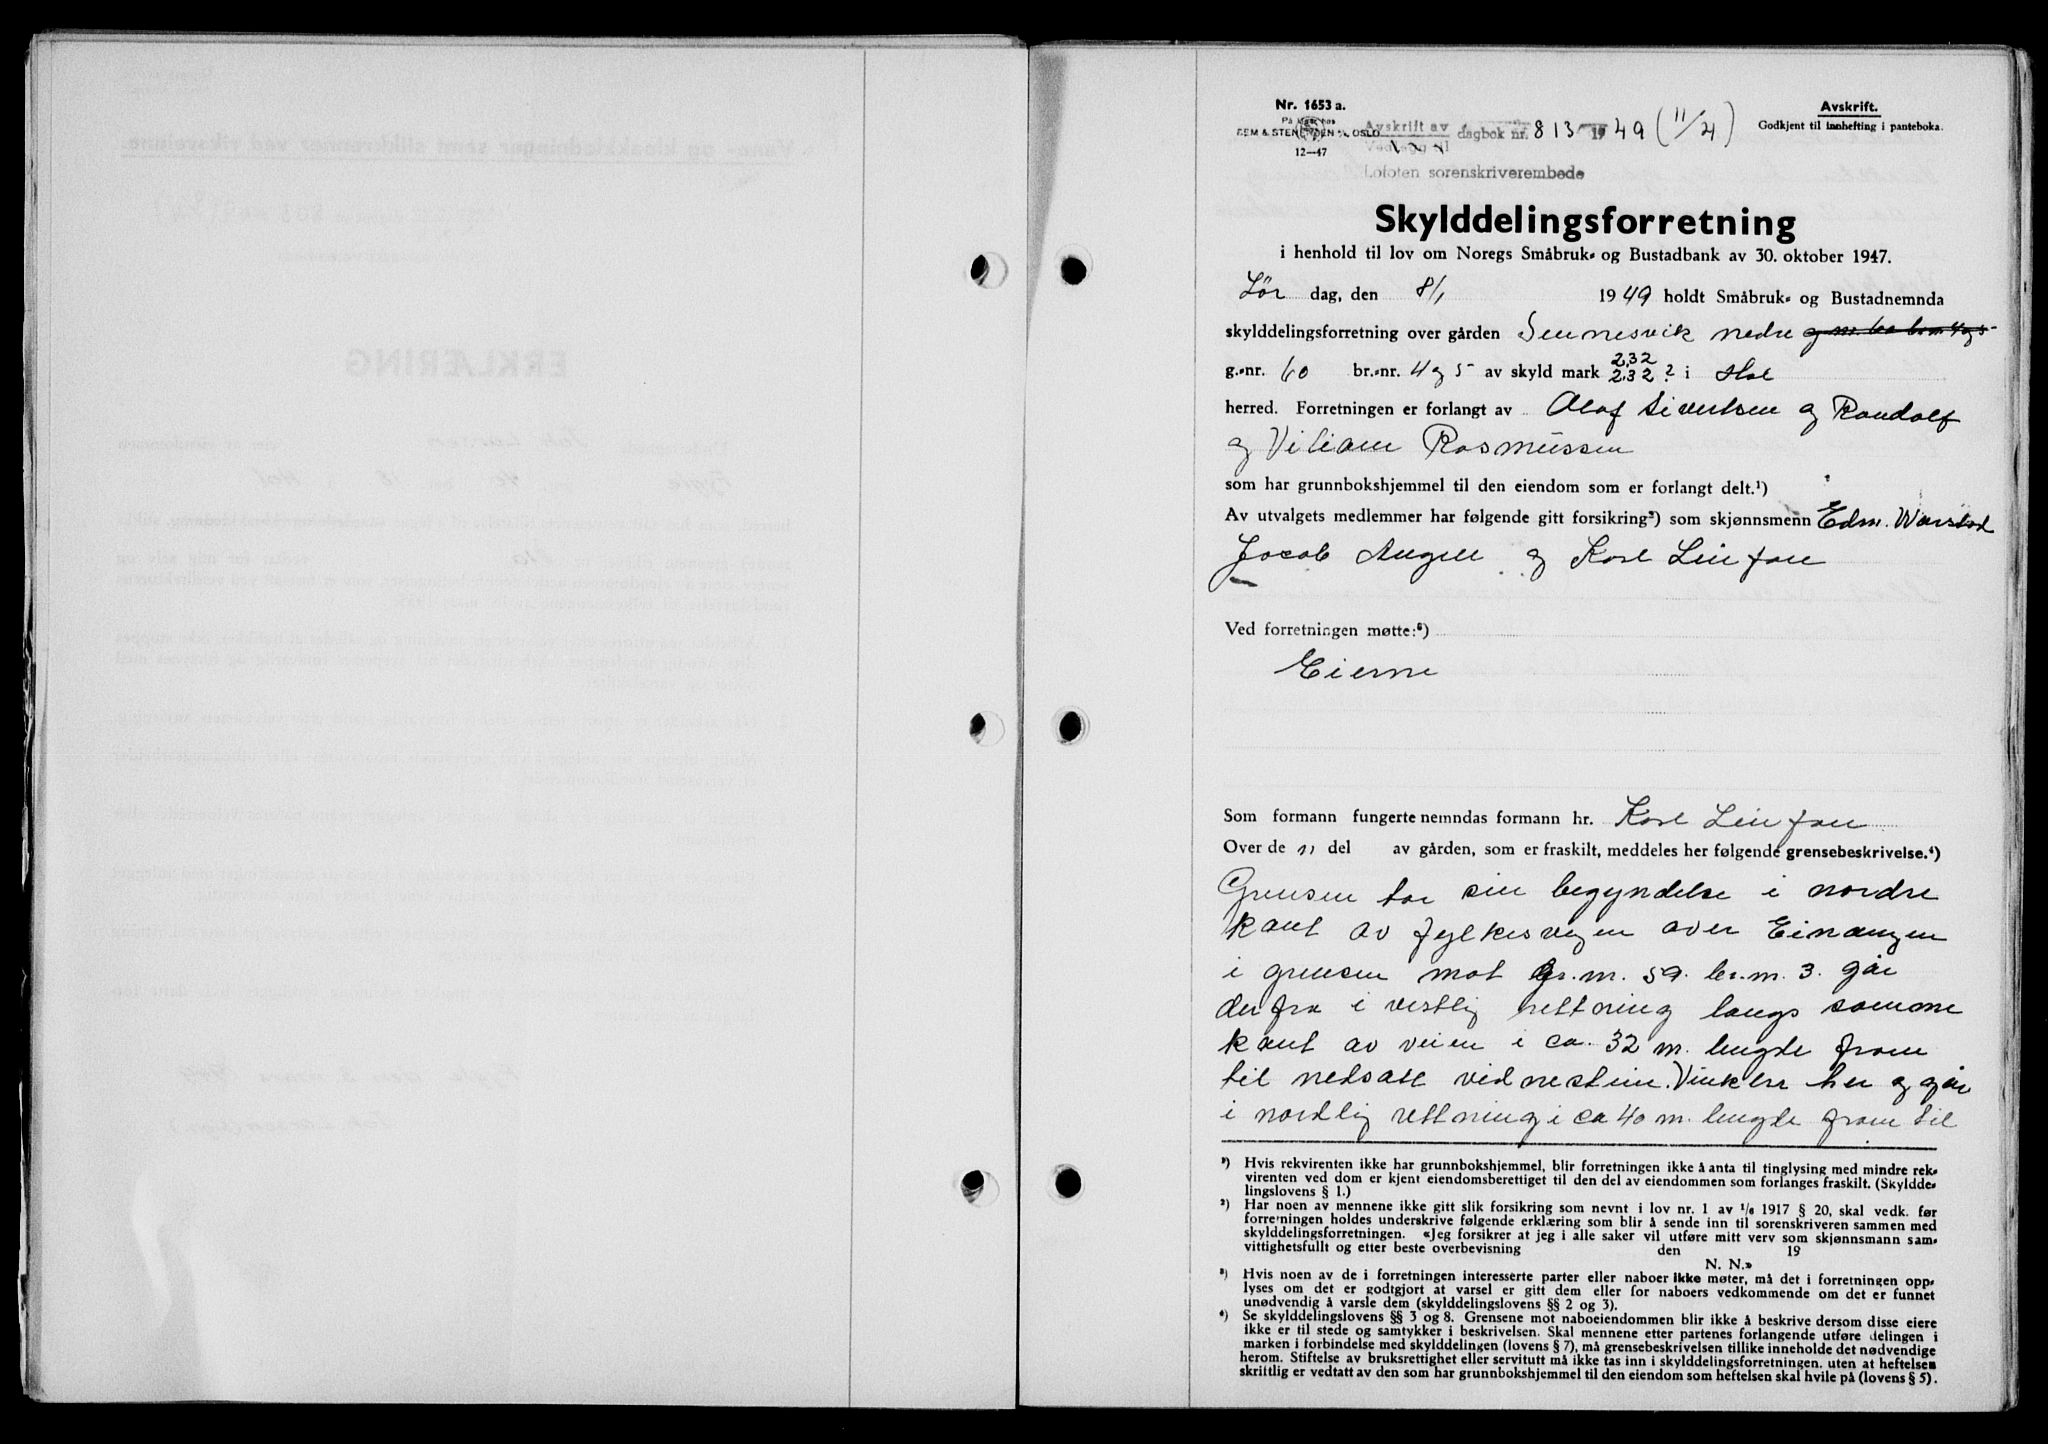 Nr. 1653 a.
På lager hos
SEM & STENERSEN A/S, OSLO
12—47
Avskrift av dagbok nr. 813 1949 (11/4)
Vedlegg til
Lofoten sorenskriverembede
Avskrift.
Godkjent til innhefting i panteboka.
Skylddelingsforretning
i henhold til lov om Noregs Småbruk- og Bustadbank av 30. oktober 1947.
Lør dag, den 8/1 1949 holdt Småbruk- og Bustadnemnda
skylddelingsforretning over gården Sennesvik nedre
g.-nr. 60 br.-nr. 4 og 5 av skyld mark 2,32 2,32 ? i Hol
herred. Forretningen er forlangt av Olaf Sivertsen og Randolf
og Viliam Rasmussen
som har grunnbokshjemmel til den eiendom som er forlangt delt.¹)
Av utvalgets medlemmer har følgende gitt forsikring²) som skjønnsmenn Edm. Warstad
Jacob Angell og Karl Leinfan
Ved forretningen møtte:³)
Eierne
Som formann fungerte nemndas formann hr. Karl Leinfan
Over de n del av gården, som er fraskilt, meddeles her følgende grensebeskrivelse.⁴)
Grensen tar sin begyndelse i nordre
kant av fylkesvegen over Einangen
i grensen mot gr.nr. 59. br.nr. 3. går
derfra i vestlig rettning langs samme
kant av veien i ca. 32 m. lengde fram
til nedsatt vidnestein. Vinkler her og går
i nordlig rettning i ca 40 m. lengde fram til
¹) Hvis rekvirenten ikke har grunnbokshjemmel, blir forretningen ikke å anta til tinglysing med mindre rek-
virenten ved dom er kjent eiendomsberettiget til den del av eiendommen som forlanges fraskilt. (Skyldde-
lingslovens § 1.)
²) Har noen av mennene ikke gitt slik forsikring som nevnt i lov nr. 1 av 1/6 1917 § 20, skal vedk. før
forretningen holdes underskrive følgende erklæring som blir å sende inn til sorenskriveren sammen med
skylddelingsforretningen. «Jeg forsikrer at jeg i alle saker vil utføre mitt verv som skjønnsmann sam-
vittighetsfullt og etter beste overbevisning den 19
N. N.»
³) Hvis noen av de i forretningen interesserte parter eller naboer ikke møter, må det i forretningen opp-
lyses om det er godtgjort at varsel er gitt dem eller for naboers vedkommende om det er funnet
unødvendig å varsle dem (skylddelingslovens §§ 2 og 3).
⁴) Se skylddelingslovens §§ 3 og 8. Grensene mot naboeiendommen blir ikke å beskrive dersom disse eiere
ikke er til stede og samtykker i beskrivelsen. Skal mennene etter partenes forlangende utføre delingen i
marken i forbindelse med skylddelingen (lovens § 7), må grensebeskrivelsen tillike inneholde det nødvendige
herom. Stiftelse av bruksrettighet eller servitutt må ikke tas inn i skylddelingsforretningen, uten at heftelsen
skriftlig er vedtatt av den som har grunnbokshjemmel til den eiendom som heftelsen skal hvile på (lovens § 5).